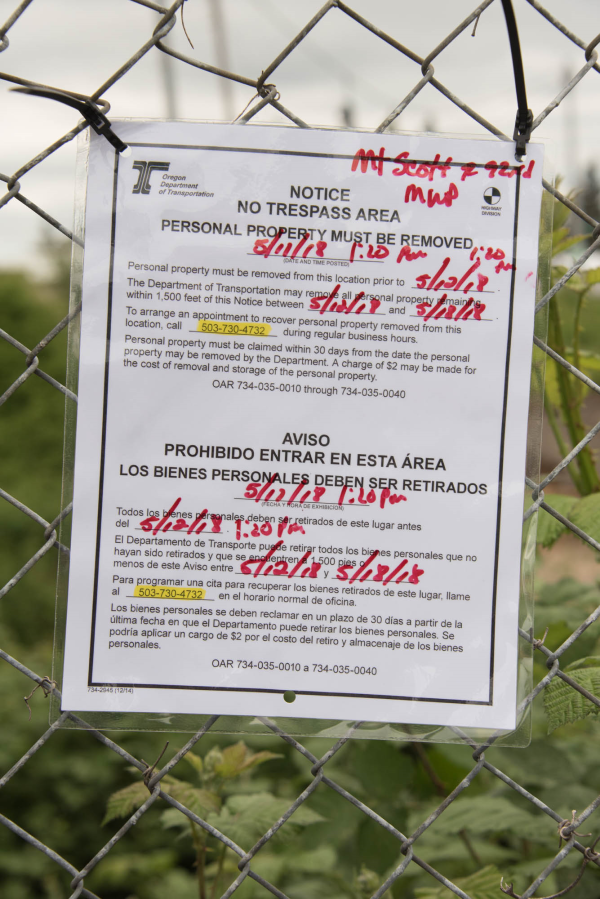 Mt Scott & 92nd
MUP
Oregon
Department
of Transportation
HIGHWAY
DIVISION
NOTICE
NO TRESPASS AREA
PERSONAL PROPERTY MUST BE REMOVED
5/11/18 1:20 Pm
(DATE AND TIME POSTED)
1:20 Pm
Personal property must be removed from this location prior to 5/12/18.
The Department of Transportation may remove all personal property remaining
within 1,500 feet of this Notice between 5/12/18 and 5/18/18.
To arrange an appointment to recover personal property removed from this
location, call 503-730-4732 during regular business hours.
Personal property must be claimed within 30 days from the date the personal
property may be removed by the Department. A charge of $2 may be made for
the cost of removal and storage of the personal property.
OAR 734-035-0010 through 734-035-0040
AVISO
PROHIBIDO ENTRAR EN ESTA ÁREA
LOS BIENES PERSONALES DEBEN SER RETIRADOS
5/11/18 1:20 Pm
(FECHA Y HORA DE EXHIBICIÓN)
Todos los bienes personales deben ser retirados de este lugar antes
del 5/12/18. 1:20 Pm
El Departamento de Transporte puede retirar todos los bienes personales que no
hayan sido retirados y que se encuentren a 1,500 pies o
menos de este Aviso entre 5/12/18 y 5/18/18
Para programar una cita para recuperar los bienes retirados de este lugar, llame
al 503-730-4732 en el horario normal de oficina.
Los bienes personales se deben reclamar en un plazo de 30 días a partir de la
última fecha en que el Departamento puede retirar los bienes personales. Se
podría aplicar un cargo de $2 por el costo del retiro y almacenaje de los bienes
personales.
OAR 734-035-0010 a 734-035-0040
734-2645 (12/14)